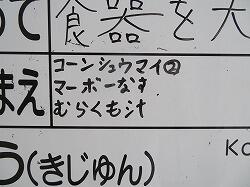 て 食器を大
コーンシュウマイ②
まえ マーボーなす
むらくも汁
う(きじゅん) Kc